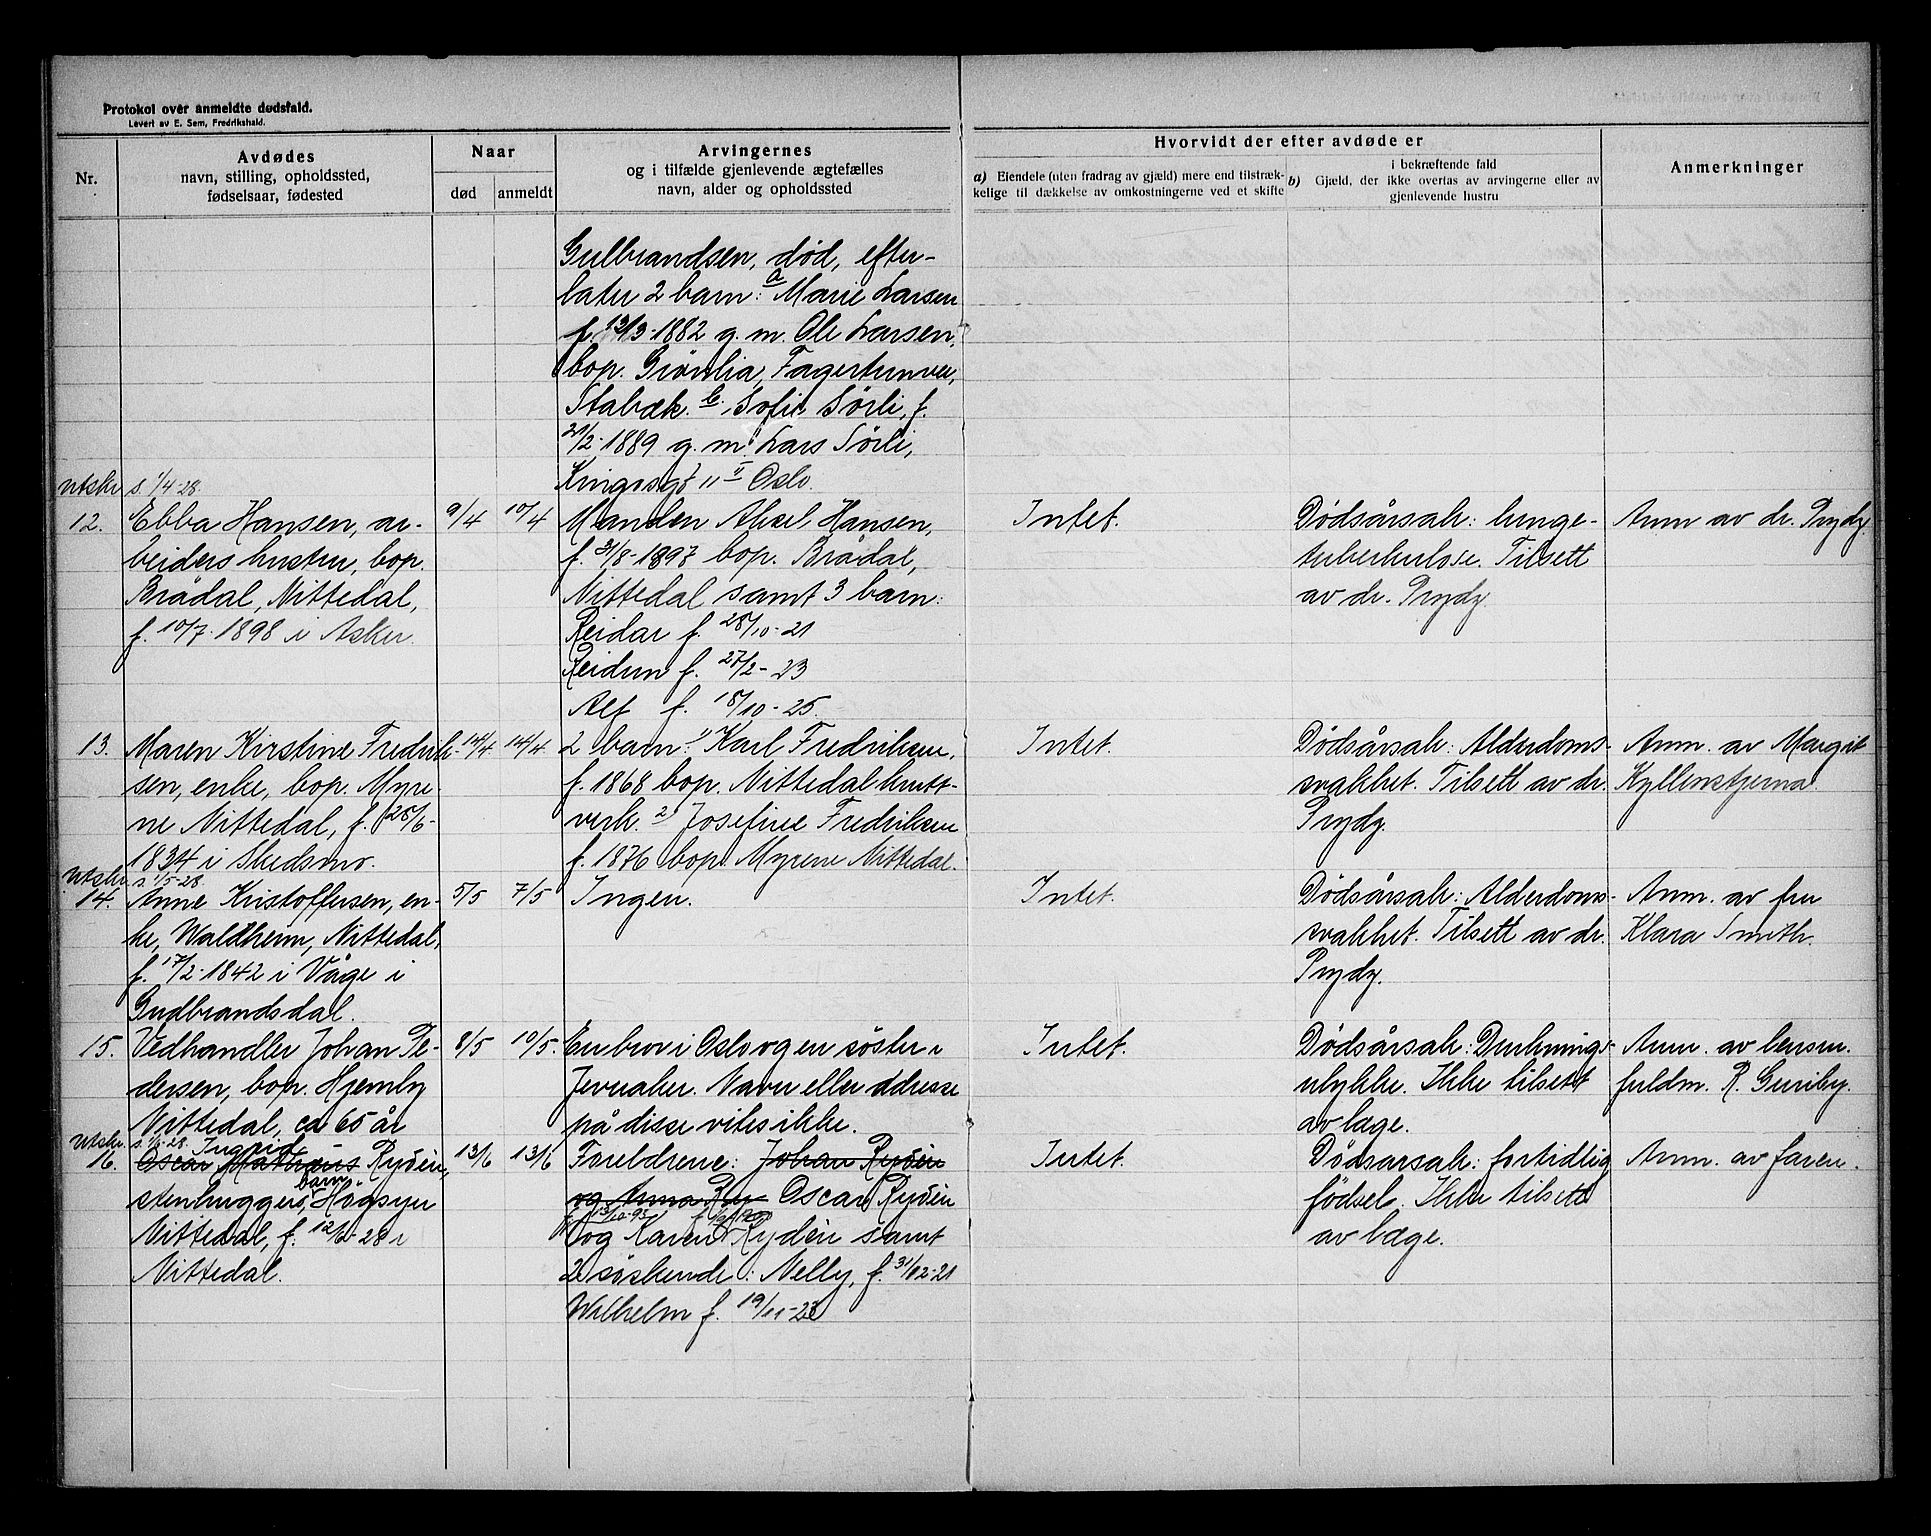 Protokol over anmeldte dødsfald.
Levert av E. Sem, Fredrikshald.
Nr.
Avdødes
navn, stilling, opholdssted,
fødselsaar, fødested
Naar
død
anmeldt
Arvingernes
og i tilfælde gjenlevende ægtefælles
navn, alder og opholdssted
Hvorvidt der efter avdøde er
a) Eiendele (uten fradrag av gjæld) mere end tilstræk-
kelige til dækkelse av omkostningerne ved et skifte
i bekræftende fald
b) Gjæld, der ikke overtas av arvingerne eller av
gjenlevende hustru
Anmerkninger
Gulbrandsen, død, efter-
later 2 barn: a Marie Larsen
f. 12/3-1882 g. m. Ole Larsen,
bop. Grønlia,
Stabæk. b. Sofie Sørli, f.
21/2-1889 g. m. Lars Sørli,
11 II Oslo.
Utskr. s. 1/4-28.
12. Ebba Hansen, ar-
beiders hustru, bop.
Brådal, Nittedal,
f. 10/7-1898 i Asker.
9/4
10/4
Manden Aksel Hansen,
f. 31/8-1897 bop. Brådal,
Nittedal samt 3 barn:
Reidar f. 28/10-21
Reidun f. 27/2-23
Alf f. 18/10-25.
Intet.
Dødsårsak: lunge-
tuberkulose. Tilsett
av dr. Prydz.
Anm av dr. Prydz.
13. Maren Kirstine Fredrik-
sen, enke, bop. Myre-
ne Nittedal, f. 25/6-
1834 i Skedsmo.
14/4
14/4
2 barn: 1) Karl Fredriksen,
f. 1868 bop. Nittedal krutt-
verk. 2) Josefine Fredriksen
f. 1876 bop. Myrene Nittedal.
Intet.
Dødsårsak: Alderdoms-
svakhet. Tilsett av dr.
Prydz.
Anm. av Margit
Kyllenstjerna.
Utskr. s. 1/5-28.
14. Anne Kristoffersen, en-
ke, Waldheim, Nittedal,
f. 17/2-1842 i Våge i
Gudbrandsdal.
5/5
7/5
Ingen.
Intet.
Dødsårsak: Alderdoms-
svakhet. Tilsett av dr.
Prydz.
Anm. av fru
Klara Smith.
15. Vedhandler Johan Pe-
dersen, bop. Hjemly
Nittedal, ca 65 år
8/5
10/5.
En bror i Oslo og en søster i
Jevnaker. Navn eller adresse
på disse vites ikke.
Intet.
Dødsårsak: Druknings-
ulykke. Ikke tilsett
av læge.
Anm. av lensm.
fuldm. R. Guriby.
Utskr. s. 1/6-28. Ingrid
16. Oscar Mathæus Rydèn,
stenhuggers barn, Høgsyn
Nittedal, f. 12/6-28 i
Nittedal.
13/6
13/6
Foreldrene: Johan Rydèn
og Anna Ry Oscar Rydèn
f. 13/10-95
og Karen Rydèn samt
2 søskende: Nelly, f. 31/12-21
Wilhelm f. 19/11-23
Intet.
Dødsarsak: fortidlig
fødsel. Ikke tilsett
av læge.
Anm. av faren.